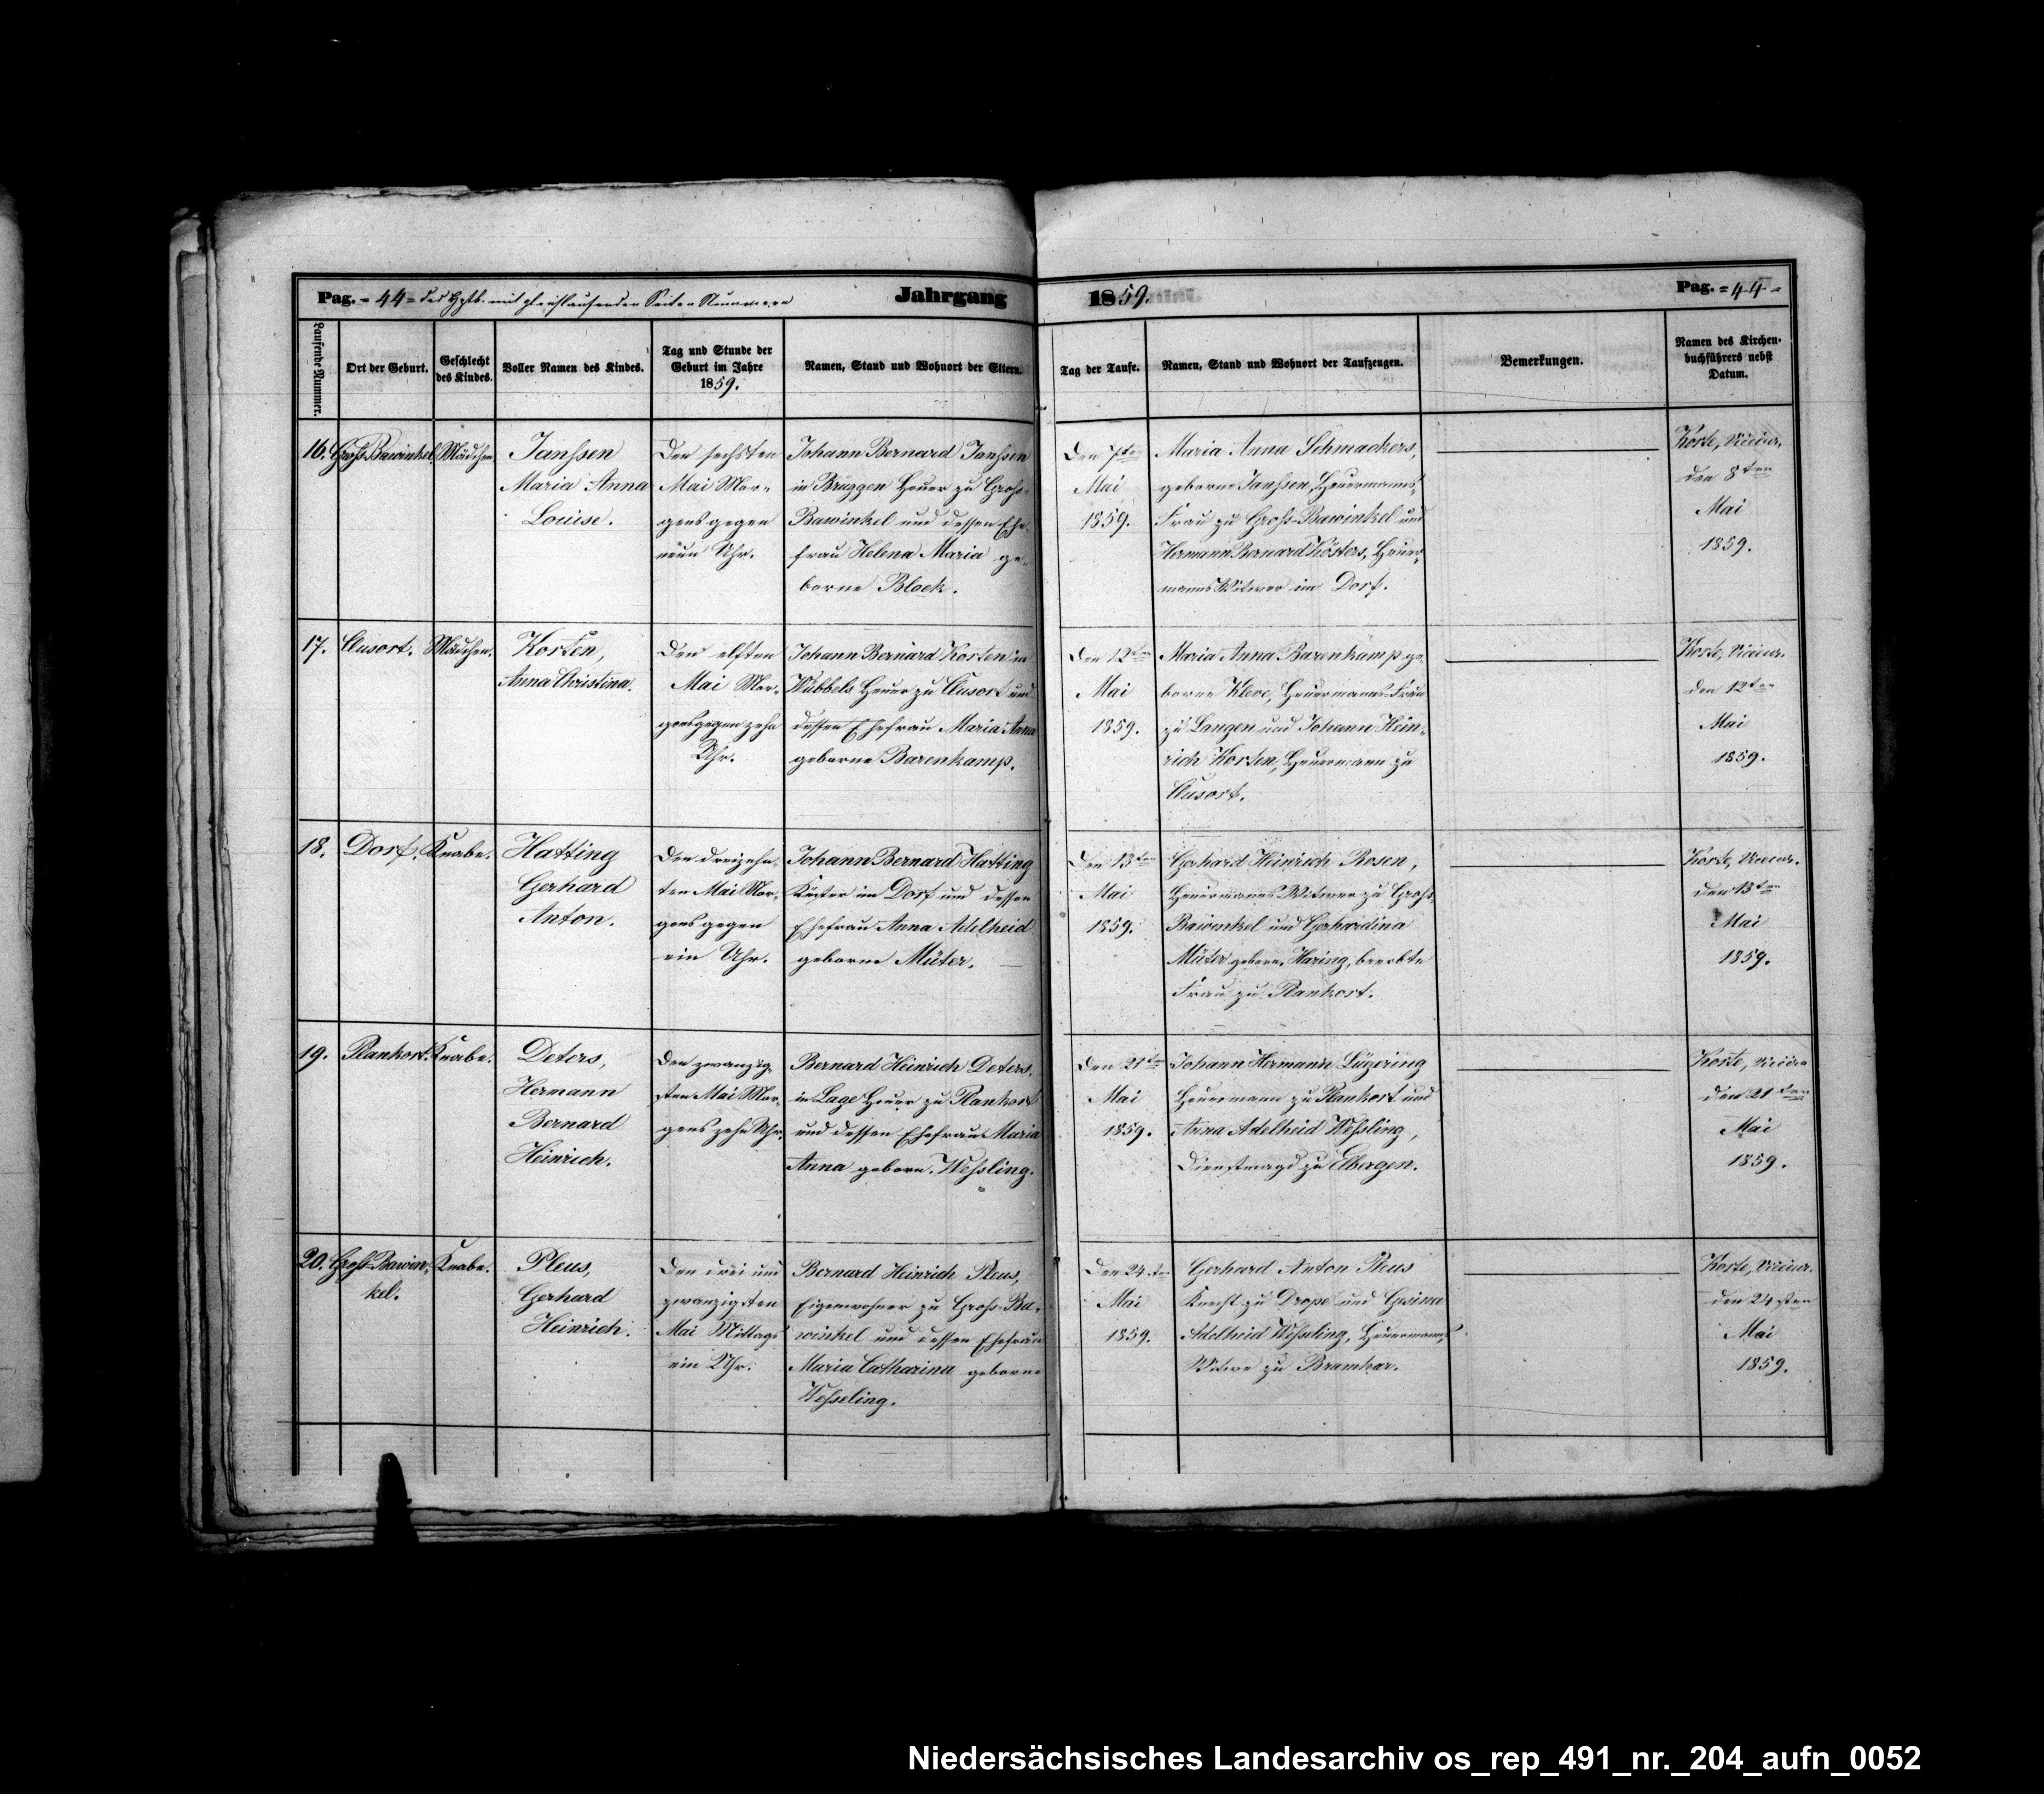 Pag. = 44 = des Hptb. mit gleichlaufenden Seiten Nummern
Jahrgang
1859.
Pag. = 44 =
Laufende Nummer.
Ort der Geburt.
Geschlecht
des Kindes.
Voller Namen des Kindes.
Tag und Stunde der
Geburt im Jahre
1859.
Namen, Stand und Wohnort der Eltern.
Tag der Taufe.
Namen, Stand und Wohnort der Taufzeugen.
Bemerkungen.
Namen des Kirchen-
buchführers nebst
Datum.
16.
Groß-Bawinkel.
Mädchen.
Janßen
Maria Anna
Louise.
Den sechsten
Mai Mor-
gens gegen
neun Uhr.
Johann Bernard Janßen
in Brüggen Heuer zu Groß-
Bawinkel und dessen Ehe-
frau Helena Maria ge-
borne Block.
Den 7ten
Mai
1859.
Maria Anna Schmackers,
geborne Janßen, Heuermanns-
Frau zu Groß-Bawinkel und
Hermann Bernard Kösters, Heuer-
manns Witwer im Dorf.
Korte, Vicecur.
den 8ten
Mai
1859.
17.
Clusort.
Mädchen.
Korten,
Anna Christina.
Den elften
Mai Mor-
gens gegen zehn
Uhr.
Johann Bernard Korten in
Wübbels Heuer zu Clusort und
dessen Ehefrau Maria Anna
geborne Barenkamp.
Den 12ten
Mai
1859.
Maria Anna Barenkamp ge-
borne Kleve, Heuermanns-Frau
zu Langen und Johann Hein-
rich Korten, Heuermann zu
Clusort.
Korte, Vicecur.
den 12ten
Mai
1859.
18.
Dorf.
Knabe.
Hatting
Gerhard
Anton.
Den dreizehn-
ten Mai Mor-
gens gegen
ein Uhr.
Johann Bernard Hatting
Küster im Dorf und dessen
Ehefrau Anna Adelheid
geborne Müter.
Den 13ten
Mai
1859.
Gerhard Heinrich Rosen,
Heuermanns Witwer zu Groß-
Bawinkel und Gerhardina
Müter geborn. Haring, beerbte
Frau zu Plankort.
Korte, Vicecur.
den 13ten
Mai
1859.
19.
Plankort.
Knabe.
Deters,
Hermann
Bernard
Heinrich.
Den zwanzig-
sten Mai Mor-
gens zehn Uhr.
Bernard Heinrich Deters,
in Lage Heuer zu Plankort
und dessen Ehefrau Maria
Anna geborn. Weßling.
Den 21ten
Mai
1859.
Johann Hermann Lügering
Heuermann zu Plankort und
Anna Adelheid Weßling,
Dienstmagd zu Elbergen.
Korte, Vicecur
den 21ten
Mai
1859.
20.
Groß-Bawin-
kel.
Knabe.
Pleus,
Gerhard
Heinrich.
Den drei und
zwanzigsten
Mai Mittags
ein Uhr.
Bernard Heinrich Pleus,
Eigenwohner zu Groß-Ba-
winkel und dessen Ehefrau
Maria Catharina geborne
Weßeling.
Den 24sten
Mai
1859.
Gerhard Anton Pleus
Knecht zu Drope und Gesina
Adelheid Weßeling, Heuermanns
Witwe zu Bramhar.
Korte, Vicecur.
den 24sten
Mai
1859.
Niedersächsisches Landesarchiv os_rep_491_nr._204_aufn_0052